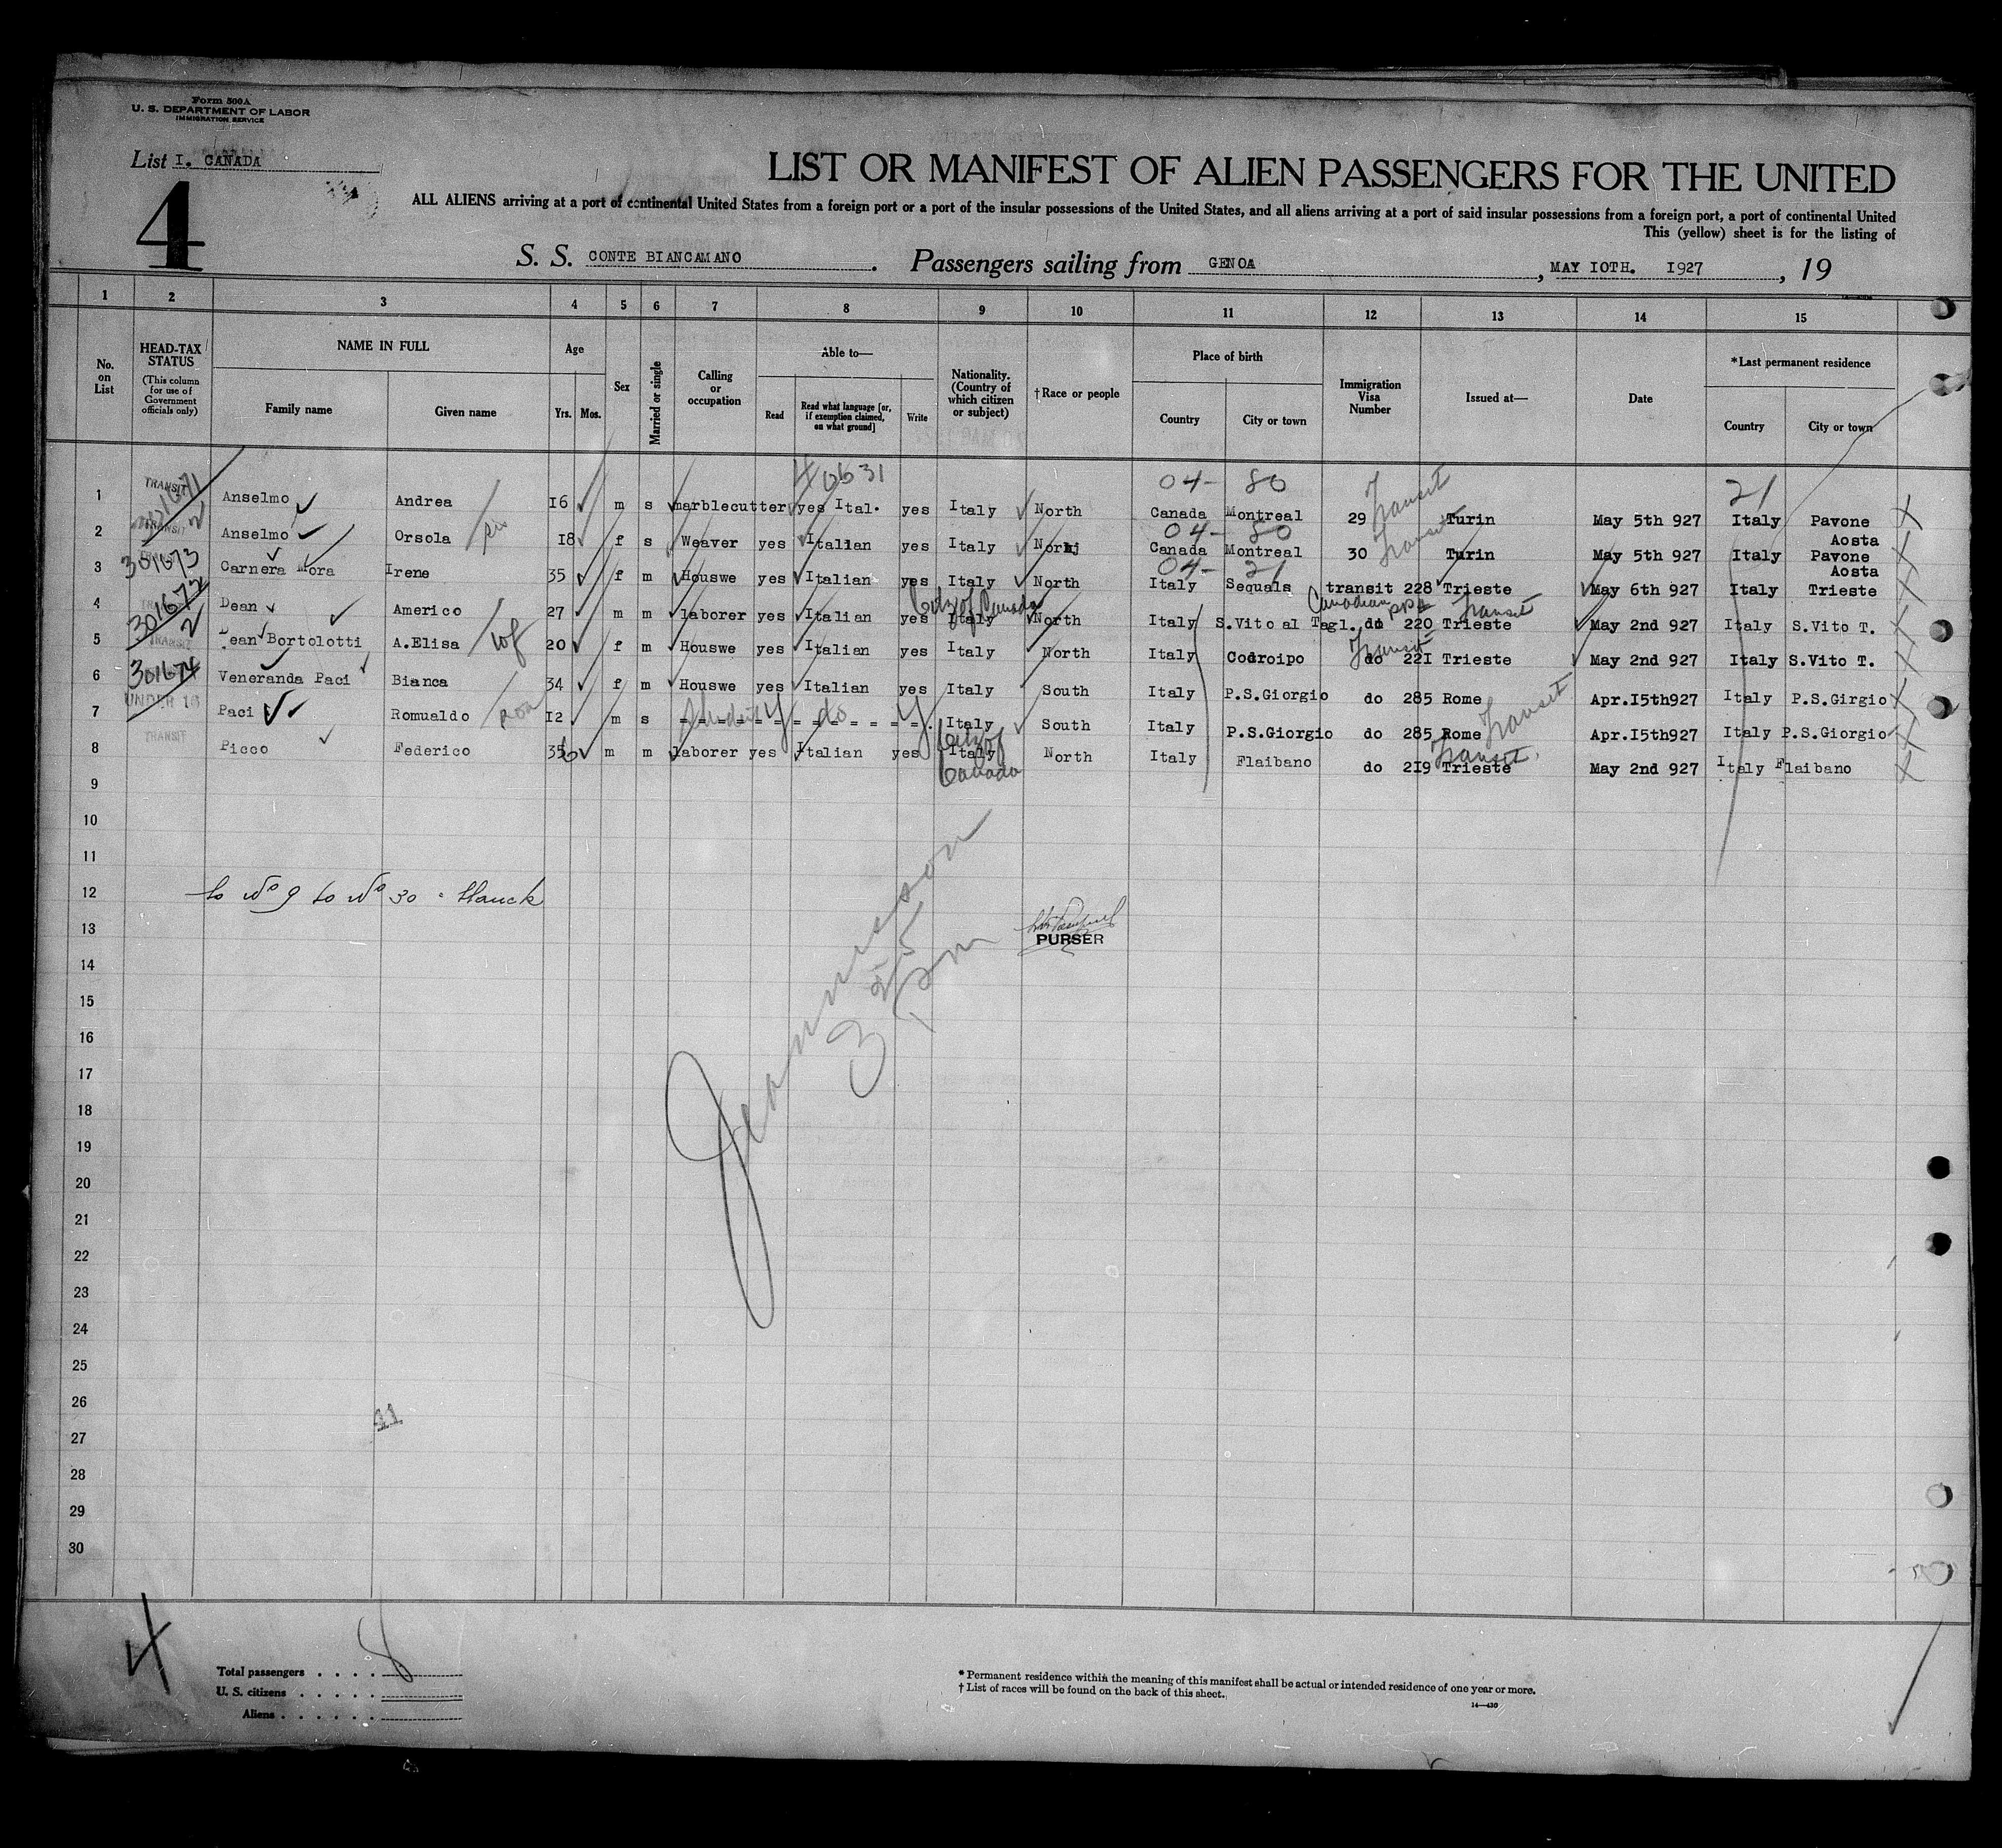 Form 500A
U. S. DEPARTMENT OF LABOR
IMMIGRATION SERVICE
List I. CANADA
4
LIST OR MANIFEST OF ALIEN PASSENGERS FOR THE UNITED
ALL ALIENS arriving at a port of continental United States from a foreign port or a port of the insular possessions of the United States, and all aliens arriving at a port of said insular possessions from a foreign port, a port of continental United
This (yellow) sheet is for the listing of
S. S. CONTE BIANCAMANO. Passengers sailing from GENOA, MAY IOTH. I927, 19
1 2 3 4 5 6 7 8 9 10 11 12 13 14 15
No. on List
HEAD-TAX STATUS
(This column for use of Government officials only)
NAME IN FULL
Family name Given name
Age
Yrs. Mos.
Sex
Married or single
Calling or occupation
Able to—
Read
Read what language [or, if exemption claimed, on what ground]
Write
Nationality. (Country of which citizen or subject)
†Race or people
Place of birth
Country City or town
Immigration Visa Number
Issued at—
Date
*Last permanent residence
Country City or town
04- 80 Transit 21
1 TRANSIT Anselmo Andrea I6 m s marblecutter yes Ital. yes Italy North Canada Montreal 29 Turin May 5th 927 Italy Pavone Aosta
04- 80 Transit
2 TRANSIT Anselmo Orsola I8 f s Weaver yes Italian yes Italy North Canada Montreal 30 Turin May 5th 927 Italy Pavone Aosta
04- 21
3 301673 Carnera Mora Irene 35 f m Houswe yes Italian yes Italy North Italy Sequals transit 228 Trieste May 6th 927 Italy Trieste
Citz of Canada Canadian Transit
4 301672 Dean Americo 27 m m laborer yes Italian yes Italy North Italy S.Vito al Tagl. do 220 Trieste May 2nd 927 Italy S.Vito T.
Transit
5 TRANSIT Dean Bortolotti A.Elisa wf 20 f m Houswe yes Italian yes Italy North Italy Codroipo do 22I Trieste May 2nd 927 Italy S.Vito T.
6 301674 Veneranda Paci Bianca 34 f m Houswe yes Italian yes Italy South Italy P.S.Giorgio do 285 Rome Apr.I5th927 Italy P.S.Girgio
7 UNDER 16 Paci Romualdo son I2 m s Student y do y Italy South Italy P.S.Giorgio do 285 Rome Transit Apr.I5th927 Italy P.S.Giorgio
8 TRANSIT Picco Federico 35 m m laborer yes Italian yes Italy Citz of Canada North Italy Flaibano do 2I9 Trieste Transit May 2nd 927 Italy Flaibano
9
10
11
12 to No 9 to No 30
13
PURSER
14
15
16
17
18
19
20
21
22
23
24
25
26
27
28
29
30
4
Total passengers . . . . 8
U. S. citizens . . . . .
Aliens . . . . . .
* Permanent residence within the meaning of this manifest shall be actual or intended residence of one year or more.
† List of races will be found on the back of this sheet.
14—430